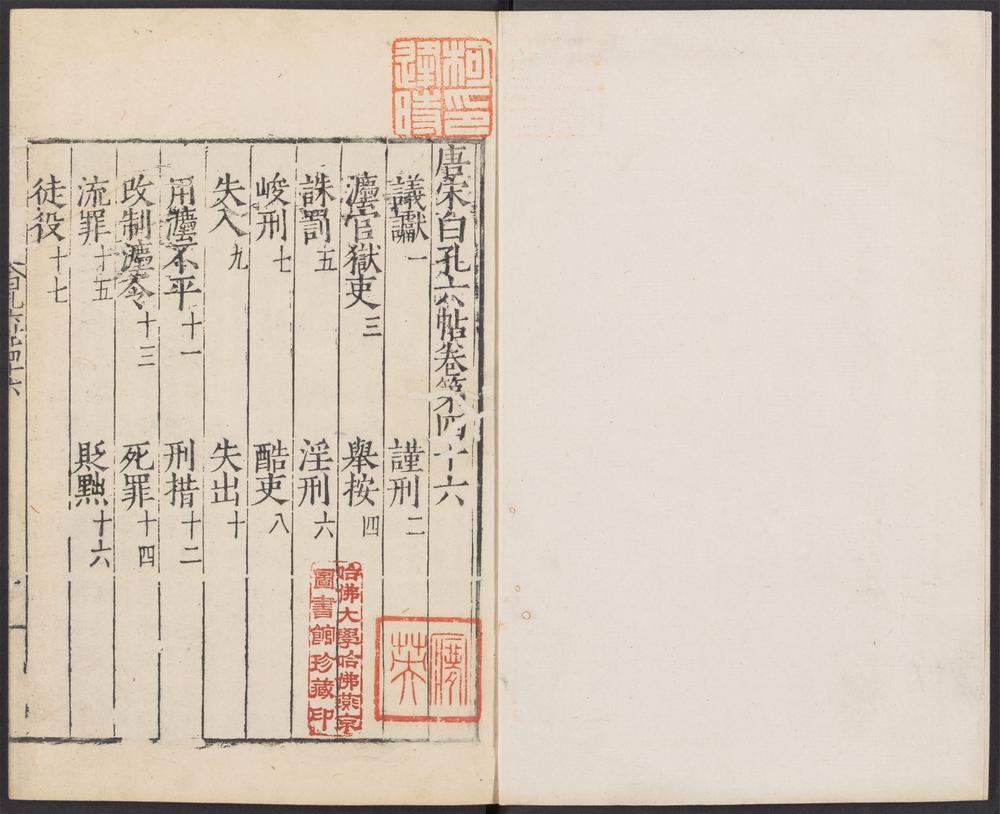 唐宋白孔六帖卷第四十六
議讞一 謹刑二
灋官獄吏三 舉按四
誅罰五 淫刑六
峻刑七 酷吏八
失入九 失出十
用灋不平十一 刑措十二
改制灋令十三 死罪十四
流罪十五 貶黜十六
徒役十七
柯逢時印
哈佛大學哈佛燕京
圖書館珍藏印